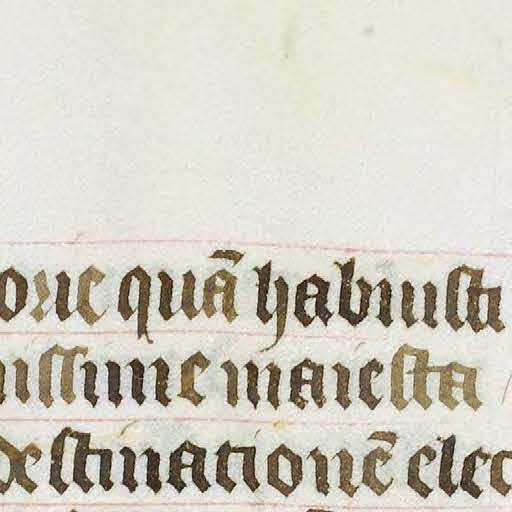 orie quā habuisti
issime maiesta
destinationē elec